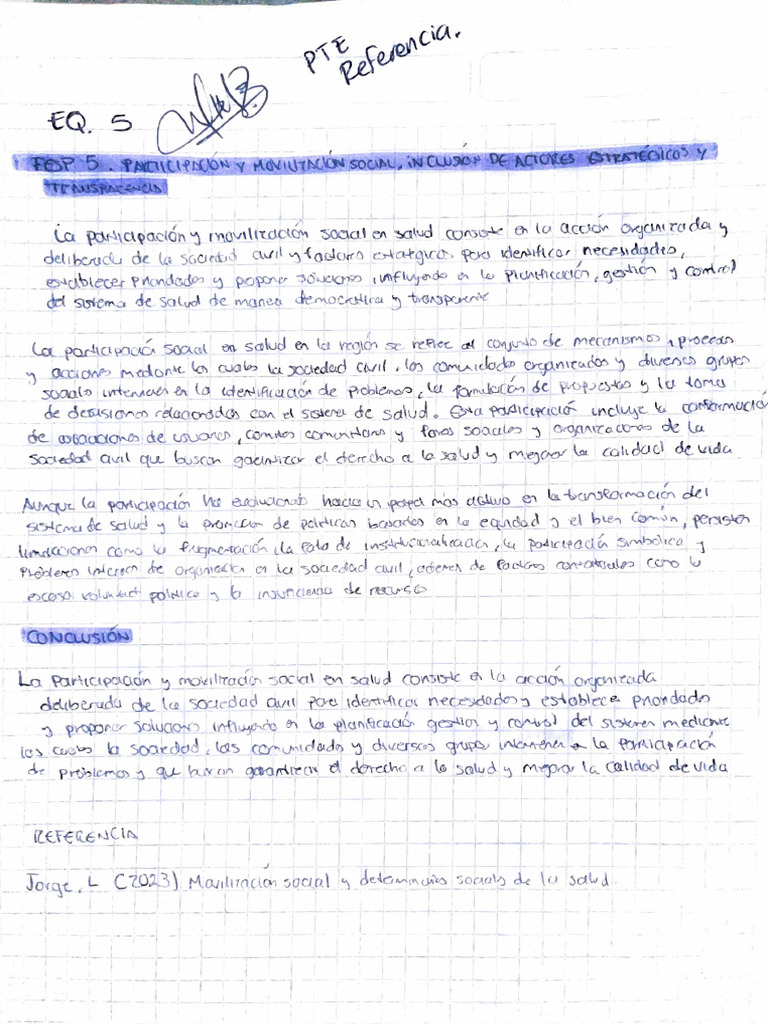 PTE
Referencia.
EQ. 5
FESP 5. PARTICIPACIÓN Y MOVILIZACIÓN SOCIAL, INCLUSIÓN DE ACTORES ESTRATÉGICOS Y
TRANSPARENCIA
La participación y movilización social en salud consiste en la acción organizada y
deliberada de la sociedad civil y factores estratégicos para identificar necesidades,
establecer prioridades y proponer soluciones, influyendo en la planificación, gestión y control
del sistema de salud de manea democratica y transparente
La participación social en salud en la región se reflee al conjunto de mecanismos, procesos
y acciones mediante los cuales la sociedad civil, las comunidades organizadas y diversos grupos
sociales intervienen en la identificación de problemas, la formulación de propuestas y la toma
de decisiones relacionadas con el sistema de salud. Esta participación incluye la conformación
de asociaciones de usuarios, comites comunitarios y foros sociales y organizaciones de la
sociedad civil que buscan garantizar el derecho a la salud y mejorar la calidad de vida
Aunque la participación ha evolucionado hacia un papel más activo en la transformación del
sistema de salud y la promoción de politicas basadas en la equidad y el bien común, persisten
limitaciones como la fragmentación, la falta de institucionalización, la participación simbólica y
problemas internos de organización en la sociedad civil, además de factores contextuales como la
escasa voluntad politica y la insuficiencia de recursos
CONCLUSIÓN
La participación y movilización social en salud consiste en la acción organizada
deliberada de la sociedad civil para identificar necesidades y establece prioridades
y proponer soluciones influyendo en la planificación gestion y control del sistema mediante
los cuales la sociedad, las comunidades y diversos grupos intervienen a la participación
de problemas y que buscan garantizar el derecho a la salud y mejorar la calidad de vida
REFERENCIA
Jorge, L (2023) Movilización social y determinantes sociales de la salud.